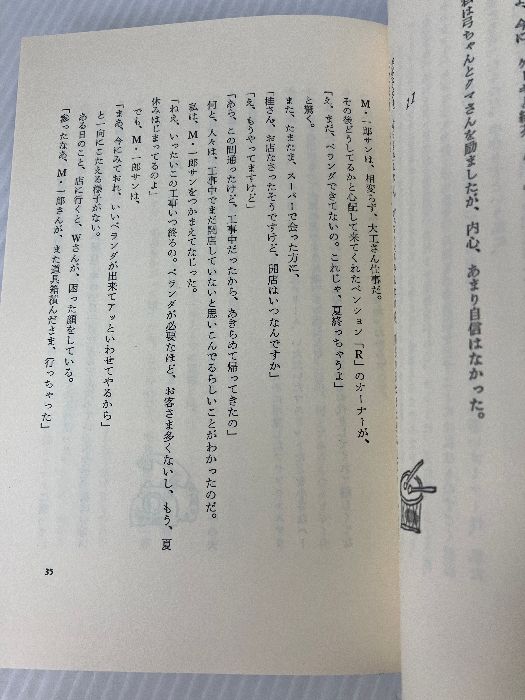 私は弓ちゃんとクマさんを励ましたが、内心、あまり自信はなかった。
M・一郎サンは、相変らず、大工さん仕事だ。
その後どうしてるかと心配して来てくれたペンション「R」のオーナーが、
「え、まだ、ベランダできてないの。これじゃ、夏終っちゃうよ」
と驚く。
また、たまたま、スーパーで会った方に、
「桂さん、お店なさったそうですけど、開店はいつなんですか」
「え、もうやってますけど」
「あら、この間通ったけど、工事中だったから、あきらめて帰ってきたの」
何と、人々は、工事中でまだ開店していないと思いこんでるらしいことがわかったのだ。
私は、M・一郎サンをつかまえてなじった。
「ねえ、いったいこの工事いつ終るの。ベランダが必要なほど、お客さま多くないし、もう、夏
休みはじまってるのよ」
でも、M・一郎サンは、
「まあ、今にみておれ、いいベランダが出来てアッといわせてやるから」
と一向にこたえる様子がない。
ある日のこと、店に行くと、Wさんが、困った顔をしている。
「参ったなあ、M・一郎さんが、また道具箱積んださま、行っちゃった」
35